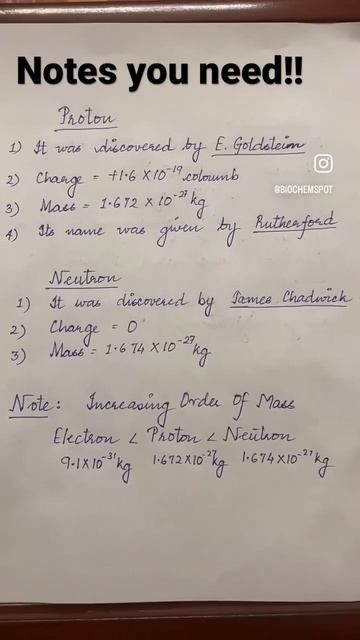 Notes you need!!
Proton
1) It was discovered by E. Goldstein
2) Charge = +1.6 X 10⁻¹⁹ coloumb
@BIOCHEMSPOT
3) Mass = 1.672 X 10⁻²⁷ kg
4) Its name was given by Rutherford
Neutron
1) It was discovered by James Chadwick
2) Charge = 0
3) Mass = 1.674 X 10⁻²⁷ kg
Note: Increasing Order Of Mass
Electron < Proton < Neutron
9.1X10⁻³¹ kg 1.672X10⁻²⁷ kg 1.674X10⁻²⁷ kg